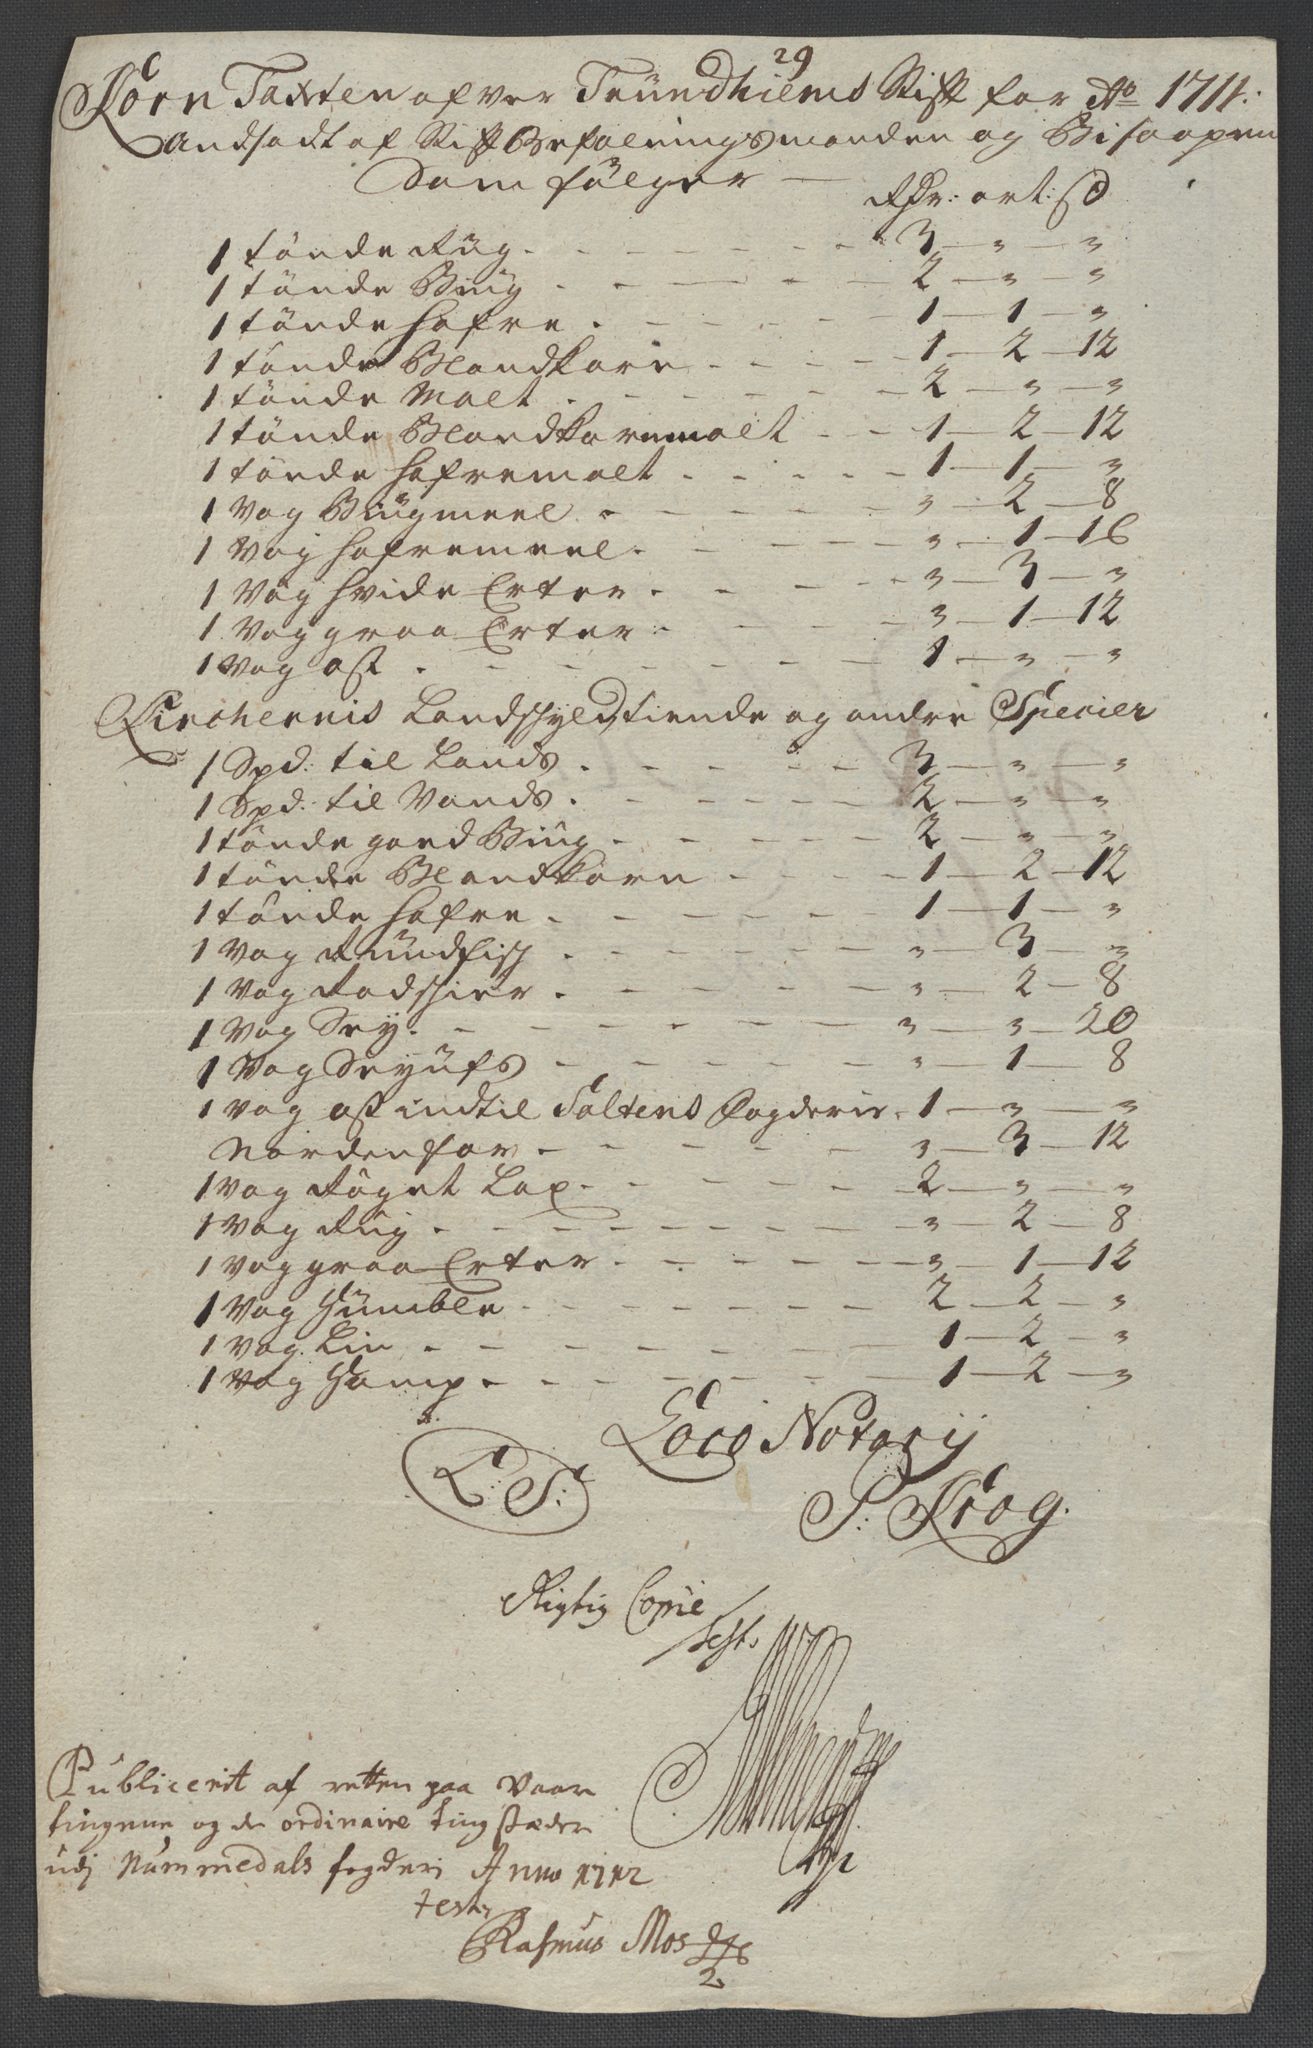 29
Korn Taxten ofver Trundhiems Stift for Ao 1711.
Andsadt af Stift Befalningsmanden og Biscopen
Som følger —
Rdr: ort: s
1 tønde Rug . 3 — " — "
1 tønde Biug . 2 — " — "
1 tønde hafre . 1 — 1 — "
1 tønde Blandkorn . 1 — 2 — 12
1 tønde Malt . 2 — " — "
1 tønde Blandkornmalt . 1 — 2 — 12
1 tønde hafremalt . 1 — 1 — "
1 Vog Biugmeel . " — 2 — 8
1 Vog hafremeel . " — 1 — 16
1 Vog hvide Erter . " — 3 — "
1 Vog graa Erter . " — 1 — 12
1 Vog ost . 1 — " — "
Kirchernis Landschyld, tiende og andre Specier
1 Spd: til Lands . 3 — " — "
1 Spd: til Vands . 2 — " — "
1 tønde goed Biug . 2 — " — "
1 tønde Blandkorn . 1 — 2 — 12
1 tønde hafre . 1 — 1 — "
1 Vog Rundfisch . " — 3 — "
1 Vog Rodschier . " — 2 — 8
1 Vog Sey . " — " — 20
1 Vog Seyufs . " — 1 — 8
1 Vog ost indtil Saltens Fogderie . 1 — " — "
Nordenfor . " — 3 — 12
1 Vog Røget Lax . 2 — " — "
1 Vog Rug . " — 2 — 8
1 Vog graa Erter . " — 1 — 12
1 Vog Humble . 2 — 2 — "
1 Vog Lin . 1 — 2 — "
1 Vog Hamp . 1 — 2 — "
Loco Notarij
L: S:
P: Krog.
Rigtig Copie
test.
Publicerit af retten paa Vaar
tingene og de ordinaire tingstæder
udj Nummedals fogderi Anno 1712
test
Rasmus Mos